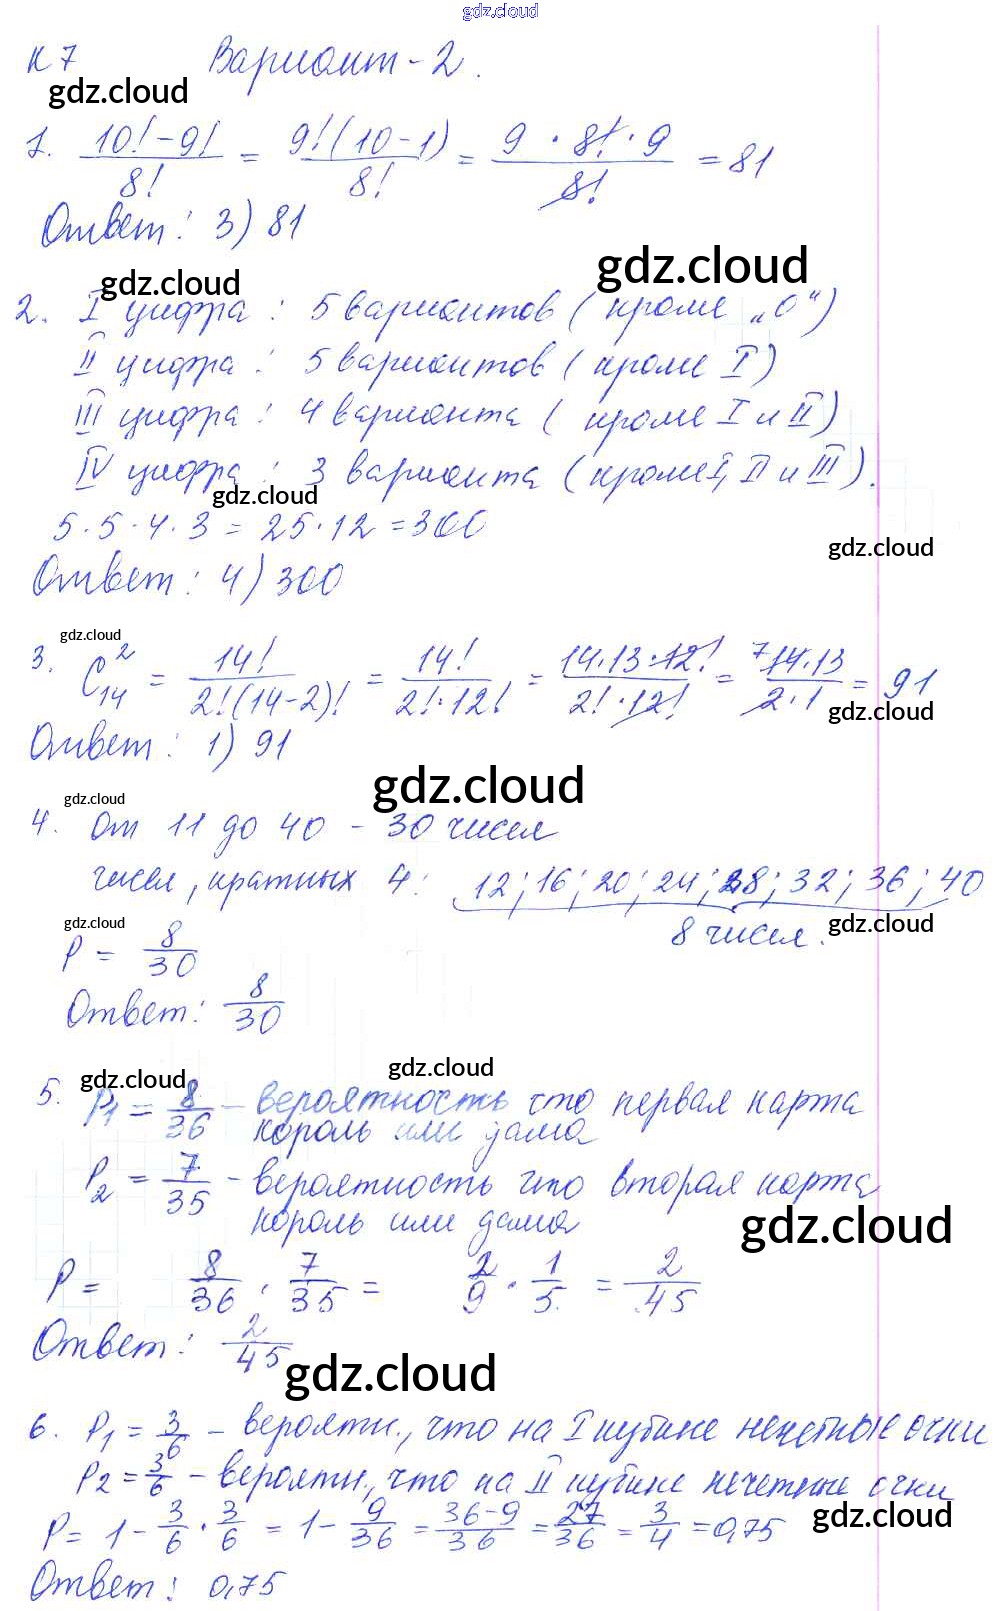 gdz.cloud
К 7 Вариант-2.
gdz.cloud
1. (10! - 9!)/8! = 9!(10-1)/8! = (9 · 8! · 9)/8! = 81
Ответ: 3) 81
gdz.cloud
gdz.cloud
2. I цифра : 5 вариантов ( кроме „0“)
II цифра : 5 вариантов ( кроме I )
III цифра : 4 варианта ( кроме I и II )
IV цифра : 3 варианта (кроме I, II и III ).
gdz.cloud
5·5·4·3 = 25·12 = 300
gdz.cloud
Ответ: 4) 300
gdz.cloud
3. C₁₄² = 14!/(2!(14-2)!) = 14!/(2!·12!) = (14·13·12!)/(2!·12!) = ⁷14·13/(2·1) = 91
gdz.cloud
Ответ: 1) 91
gdz.cloud
gdz.cloud
4. От 11 до 40 - 30 чисел
чисел, кратных 4: 12; 16; 20; 24; 28; 32; 36; 40
gdz.cloud
gdz.cloud
8 чисел.
P = 8/30
Ответ: 8/30
gdz.cloud
gdz.cloud
5. P₁ = 8/36 - вероятность что первая карта
король или дама
P₂ = 7/35 - вероятность что вторая карта
король или дама
gdz.cloud
P = 8/36 · 7/35 = 2/9 · 1/5 = 2/45
Ответ: 2/45
gdz.cloud
6. P₁ = 3/6 - вероятн., что на I кубике нечетные очки
P₂ = 3/6 - вероятн, что на II кубике нечетные очки
gdz.cloud
P = 1 - 3/6 · 3/6 = 1 - 9/36 = (36-9)/36 = 27/36 = 3/4 = 0,75
Ответ: 0,75